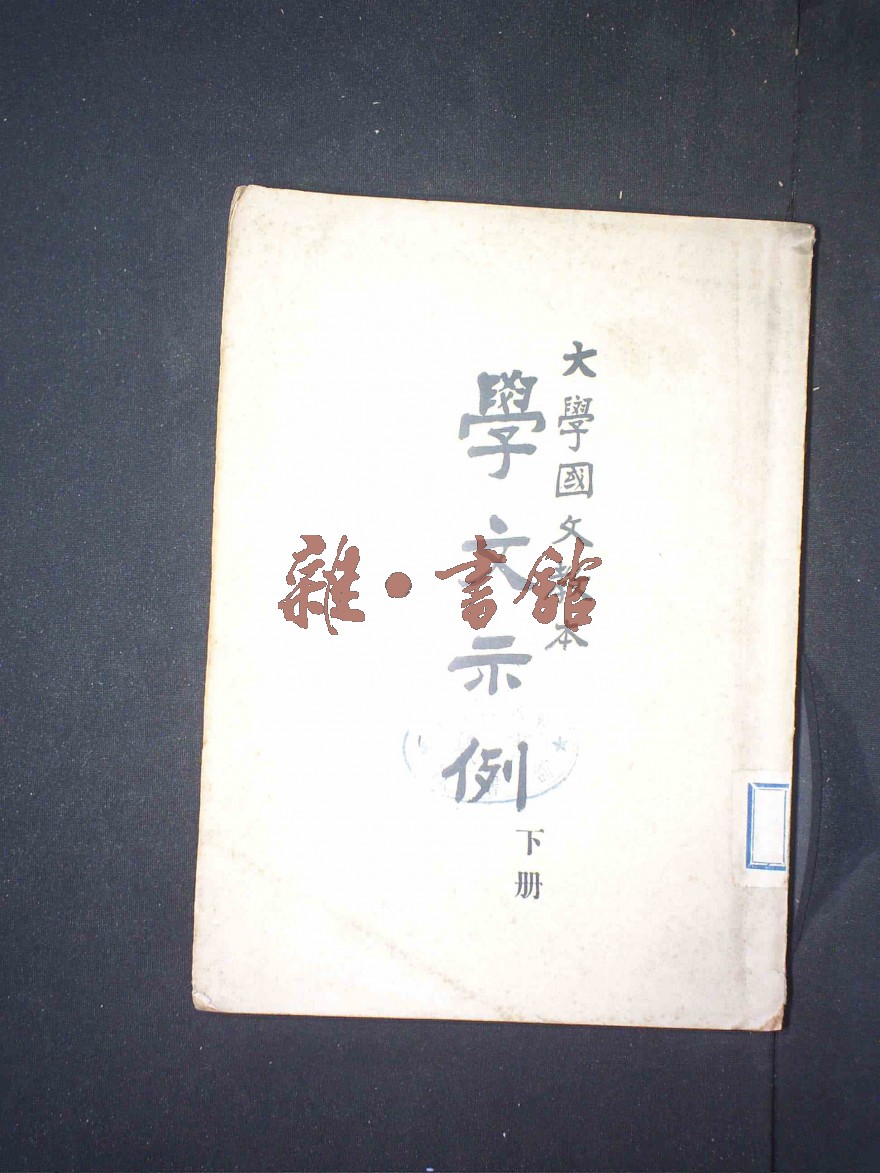 大學國文教本
學文示例
下册
雜·書館